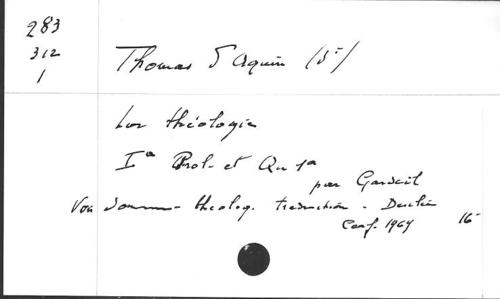 283
312
1
Thomas d'Aquin (St)
La théologie
Iª Prol. et Qu 1ª
par Gardeil
Voir Somme théolog. traduction - Desclée
1964 16-